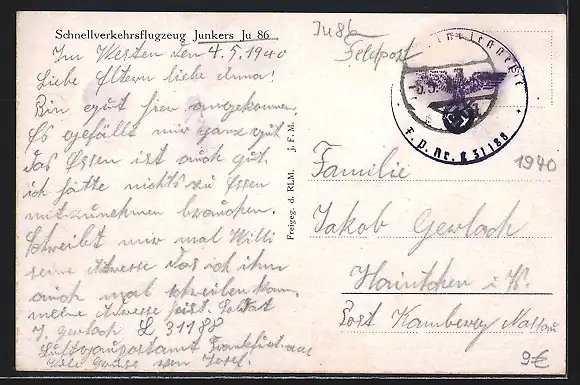 Schnellverkehrsflugzeug Junkers Ju 86
Im Westen den 4.5.1940
Liebe Eltern liebe Anna!
Bin gut hier angekommen.
Es gefällt mir ganz gut
das Essen ist auch gut
ich hätte nichts zu Essen
mitzunehmen brauchen.
Schreibt mir mal Willi
seine Adresse das ich ihm
auch mal schreiben kann,
meine Adresse ist. Soldat
J. Gerlach L 31188
Luftgaupostamt Frankfurt
viele Grüße von Josef.
Freigeg. d. RLM. J. F. M.
Ju 86
Feldpost
F.P. Nr. L 31188
1940
Familie
Jakob Gerlach
Haintchen i. T.
Post Kamberg Nassau
9€